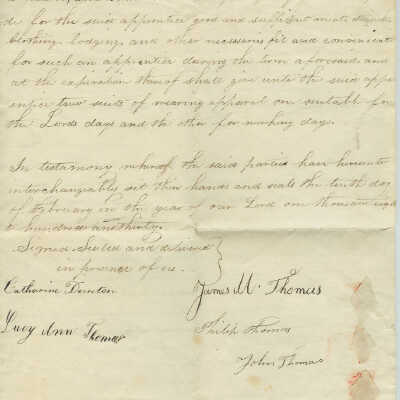 de for the said apprentice good and sufficient meat drink
clothing lodging and other necessaries fit and convenient
for such an apprentice during the term aforesaid and
at the expiration thereof shall give unto the said appr
entice two suits of wearing apparel one suitable for
the Lords days and the other for working days.
In testimony whereof the said parties have hereunto
interchangeably set their hands and seals the tenth day
of February in the year of our Lord one thousand eigh
t hundred and thirty.
Signed Sealed and delivered
in presence of us.
Catharine
James M. Thomas
Lucy Ann Thomas
Philip Thomas
John Thomas